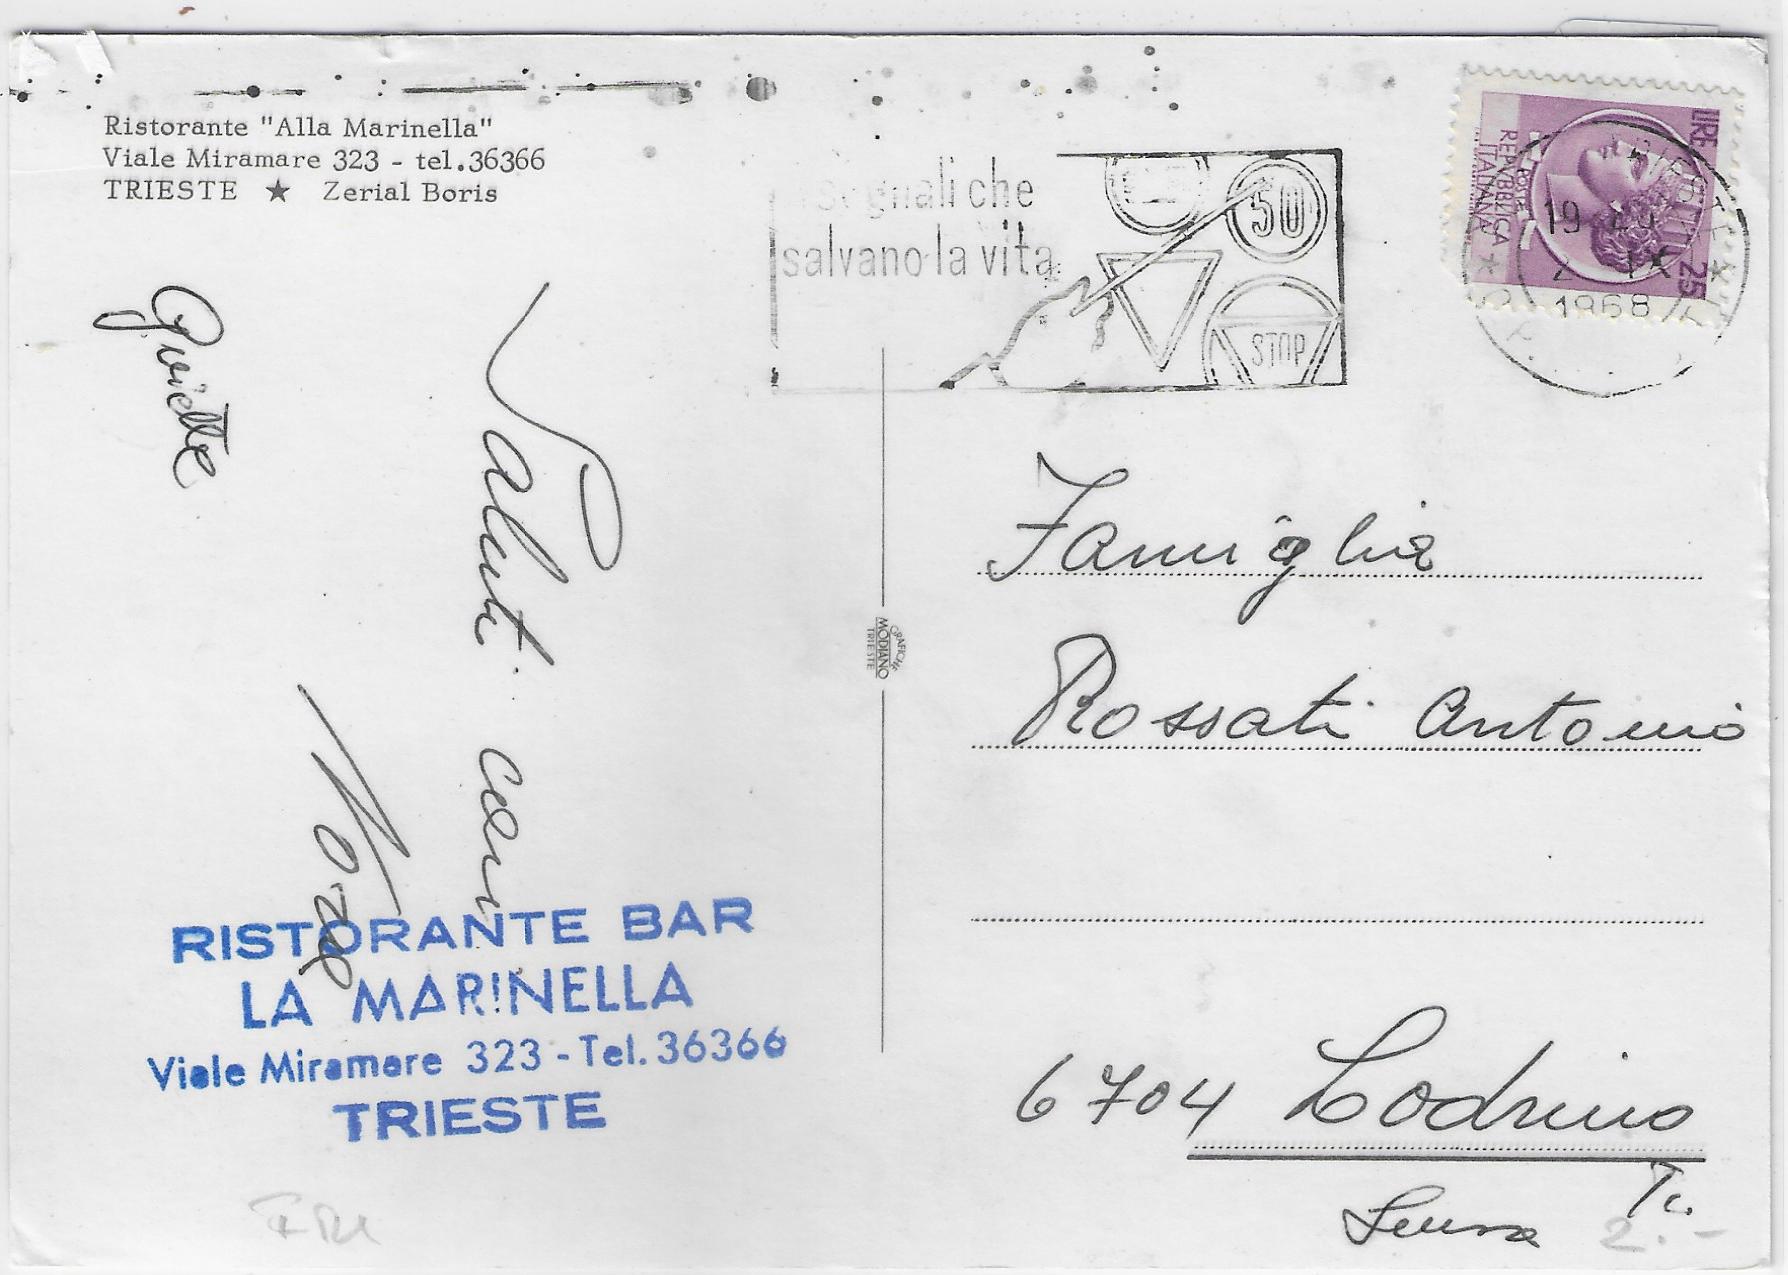 Ristorante "Alla Marinella"
Viale Miramare 323 - tel.36366
TRIESTE ★ Zerial Boris
segnali che
salvano la vita
50
STOP
LIRE 25
POSTE
REPVBBLICA
ITALIANA
TRIESTE
19
2 IX
1968
Saluti cari
GRAFICHE
MODIANO
TRIESTE
Famiglia
Rossati Antonio
6704 Lodrino
Ti.
2.-
RISTORANTE BAR
LA MARINELLA
Viale Miramare 323 - Tel. 36366
TRIESTE